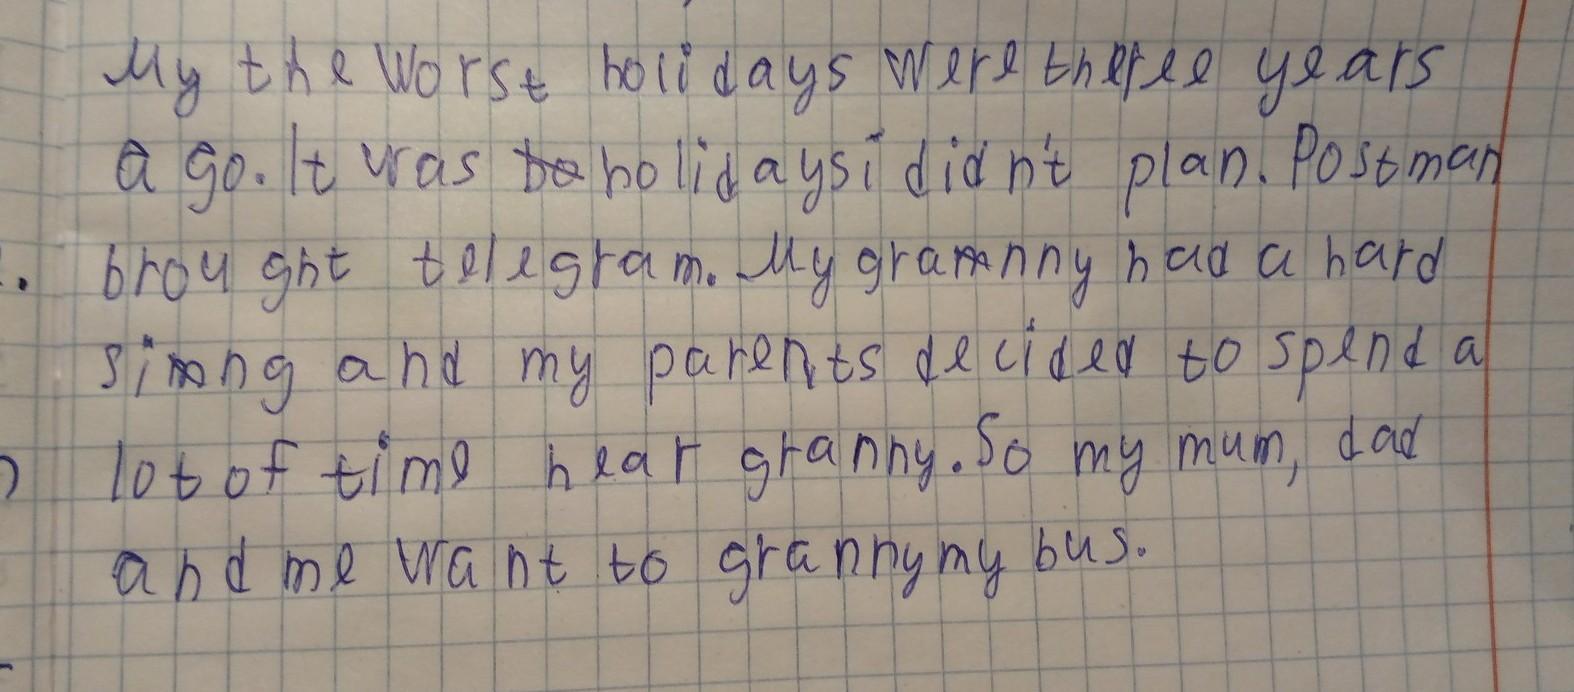 My the worst holidays were theree years
a go. It was holidays i didn't plan. Postman
brought telegram. My grannny had a hard
simng and my parents decided to spend a
lot of time near granny. So my mum, dad
and me want to granny my bus.